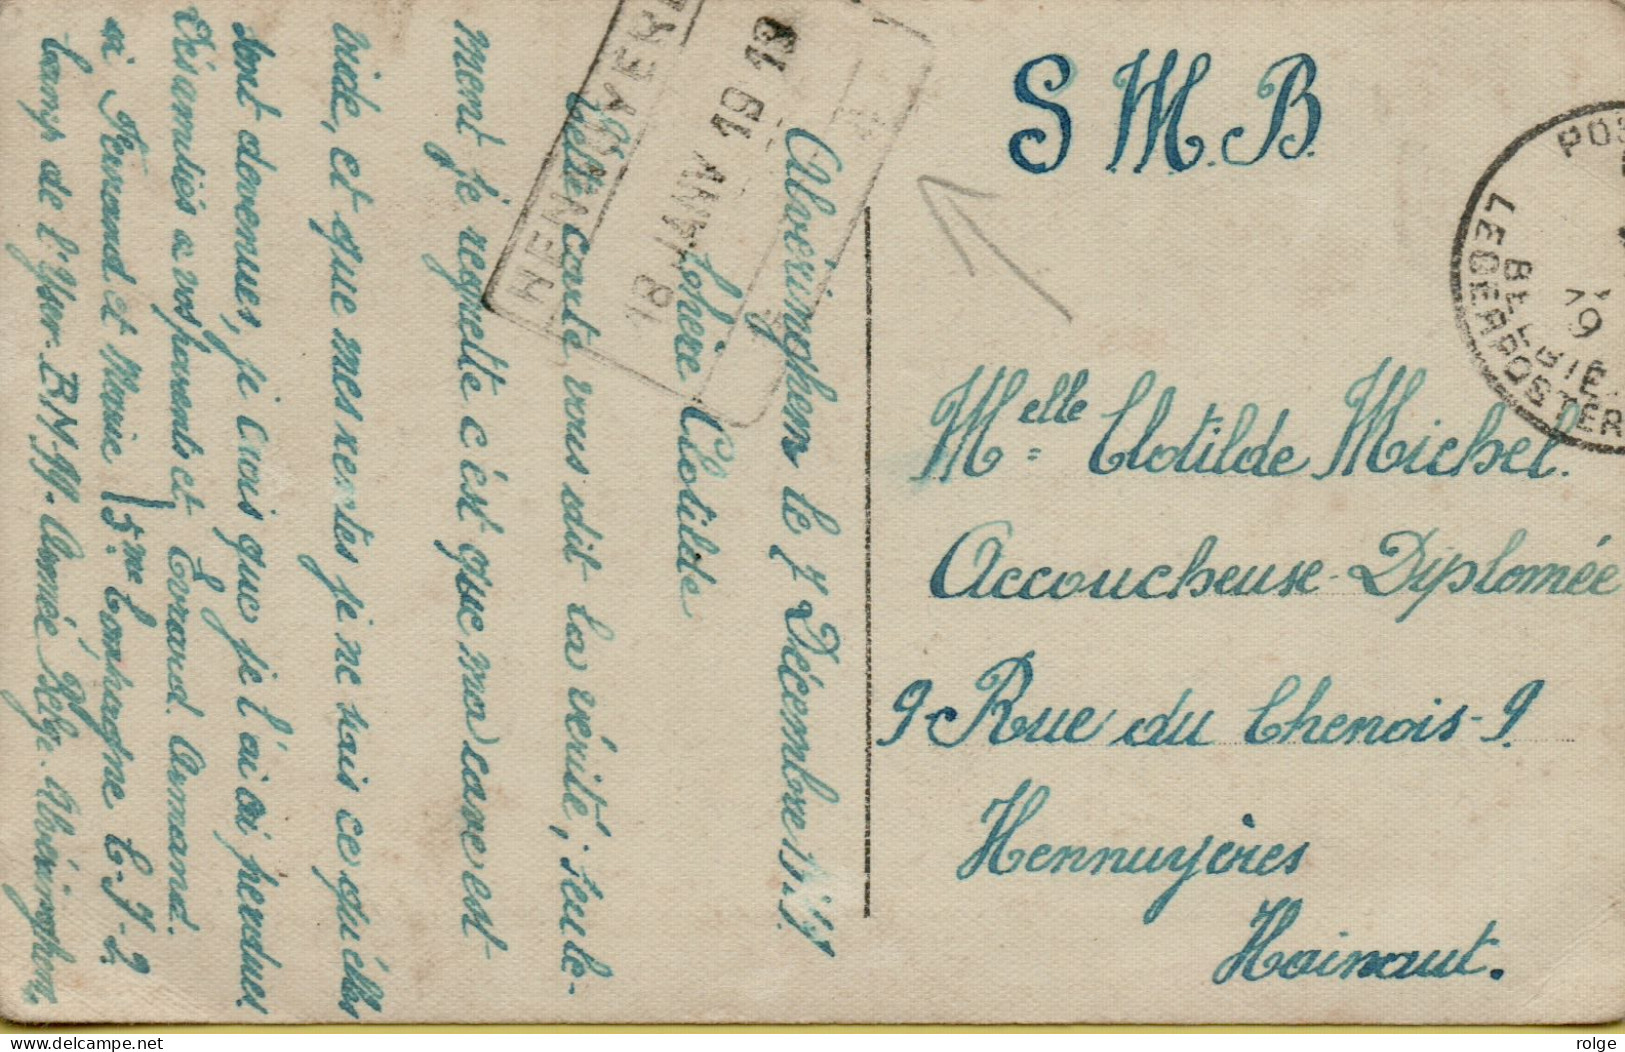 S M.B.
HENNUYERE
18 JANV 19 19
A
POS
BELGIE
LEGERPOSTER
19
Melle Clotilde Michel.
Accoucheuse-Diplomée
9-Rue du Chenois-9.
Hennuyères
Hainaut.
Alveringhem le 7 Décembre
Chère Clotilde
Cette carte vous dit la vérité, seule-
ment je regrette c'est que ma cave est
vide, et que mes xertes je ne sais ce qu'elles
sont devenues, je crois que je l'ai ai perdues
Vis amitiés a vos parents et Evrard. Armand.
ai Fernand et Marie 5me Compagne C-I-2
Camp de l'Yser. Armée Belge. Alveringhem.